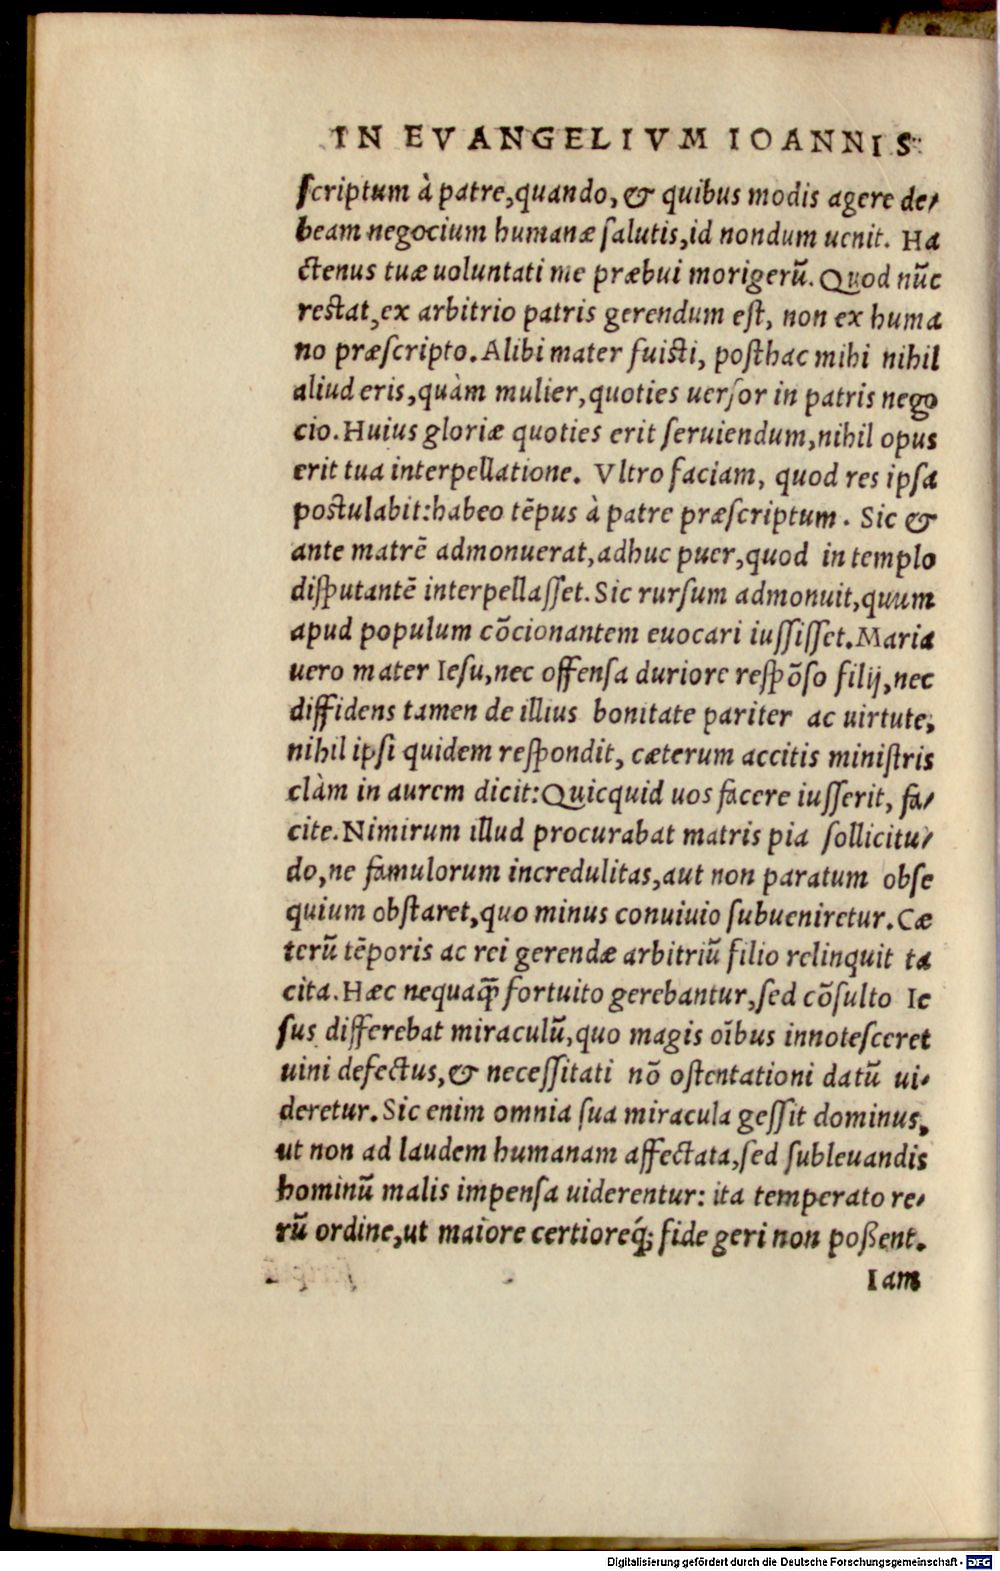 IN EVANGELIVM IOANNIS
ſcriptum à patre,quando, & quibus modis agere de-
beam negocium humanæ ſalutis,id nondum uenit. Ha
ctenus tuæ uoluntati me præbui morigerũ. Quod nũc
restat,ex arbitrio patris gerendum eſt, non ex huma
no præſcripto. Alibi mater fuiſti, poſthac mihi nihil
aliud eris,quàm mulier,quoties uerſor in patris nego
cio. Huius gloriæ quoties erit ſeruiendum,nihil opus
erit tua interpellatione. Vltro faciam, quod res ipſa
postulabit:habeo tẽpus à patre præſcriptum. Sic &
ante matrẽ admonuerat,adhuc puer,quod in templo
diſputantẽ interpellaſſet. Sic rurſum admonuit,quum
apud populum cõcionantem euocari iuſſiſſet. Maria
uero mater Ieſu,nec offenſa duriore reſpõſo filij,nec
diffidens tamen de illius bonitate pariter ac uirtute,
nihil ipſi quidem reſpondit, cæterum accitis miniſtris
clàm in aurem dicit: Quicquid uos facere iuſſerit, fa-
cite. Nimirum illud procurabat matris pia ſollicitu-
do,ne famulorum incredulitas,aut non paratum obſe
quium obſtaret,quo minus conuiuio ſubueniretur. Cæ
terũ tẽporis ac rei gerendæ arbitriũ filio relinquit ta
cita. Hæc nequaq̃ fortuito gerebantur,ſed cõſulto Ie
ſus differebat miraculũ,quo magis oĩbus innoteſceret
uini defectus,& neceſſitati nõ oſtentationi datũ ui-
deretur. Sic enim omnia ſua miracula geſſit dominus,
ut non ad laudem humanam affectata,ſed ſubleuandis
hominũ malis impenſa uiderentur: ita temperato re-
rũ ordine,ut maiore certioreq́; fide geri non poßent.
Iam
Digitalisierung gefördert durch die Deutsche Forschungsgemeinschaft - DFG